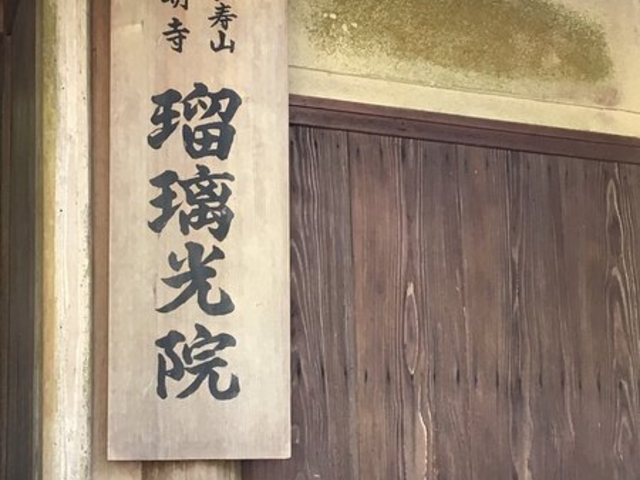 寿山
明寺
瑠璃光院